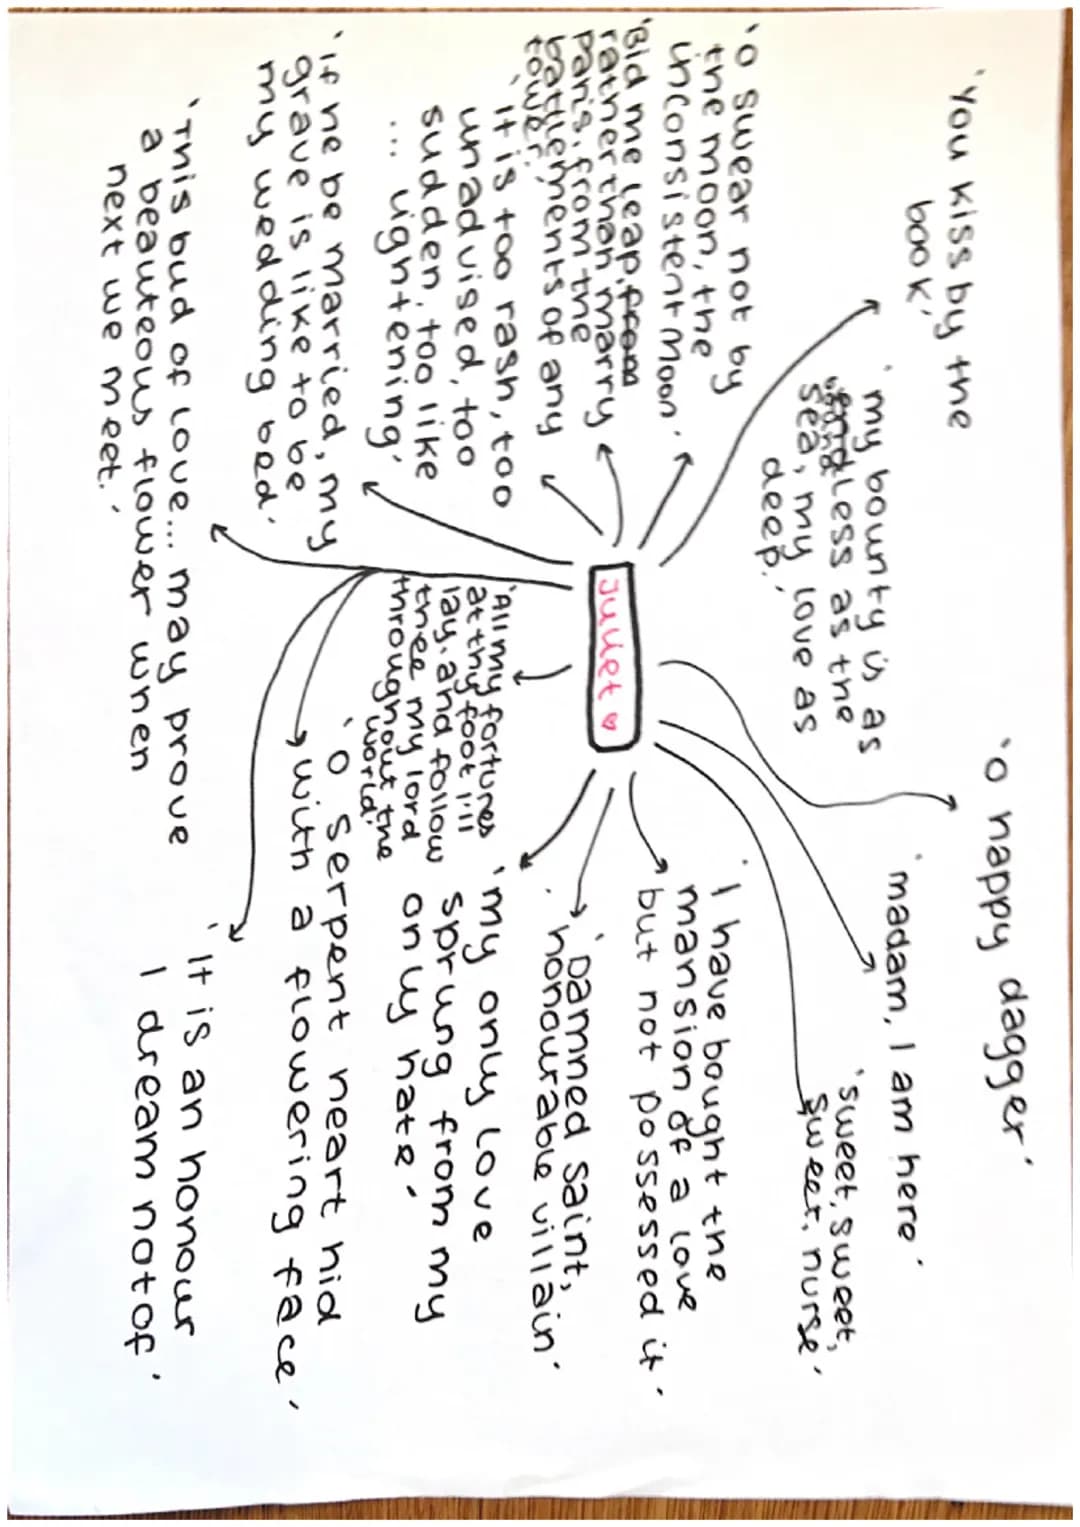 'You kiss by the
book'
'my bounty is as
endless as the
sea, my love as
deep.'
'O happy dagger'
'madam, I am here'
'sweet, sweet,
sweet, nurse'
'O swear not by
the moon, the
inconsistent moon'
'Bid me leap, from
rather than marry
paris, from the
battlements of any
tower.'
'It is too rash, too
unadvised, too
sudden, too like
... lightening'
'if he be married, my
grave is like to be
my wedding bed'
'This bud of love... may prove
a beauteous flower when
next we meet.'
Juliet
'All my fortunes
at thy foot I'll
lay, and follow
thee my lord
throughout the
world'
'I have bought the
mansion of a love
but not possessed it'
'Damned saint,
honourable villain'
'my only love
sprung from my
only hate'
'O serpent heart hid
with a flowering face'
'It is an honour
I dream not of'